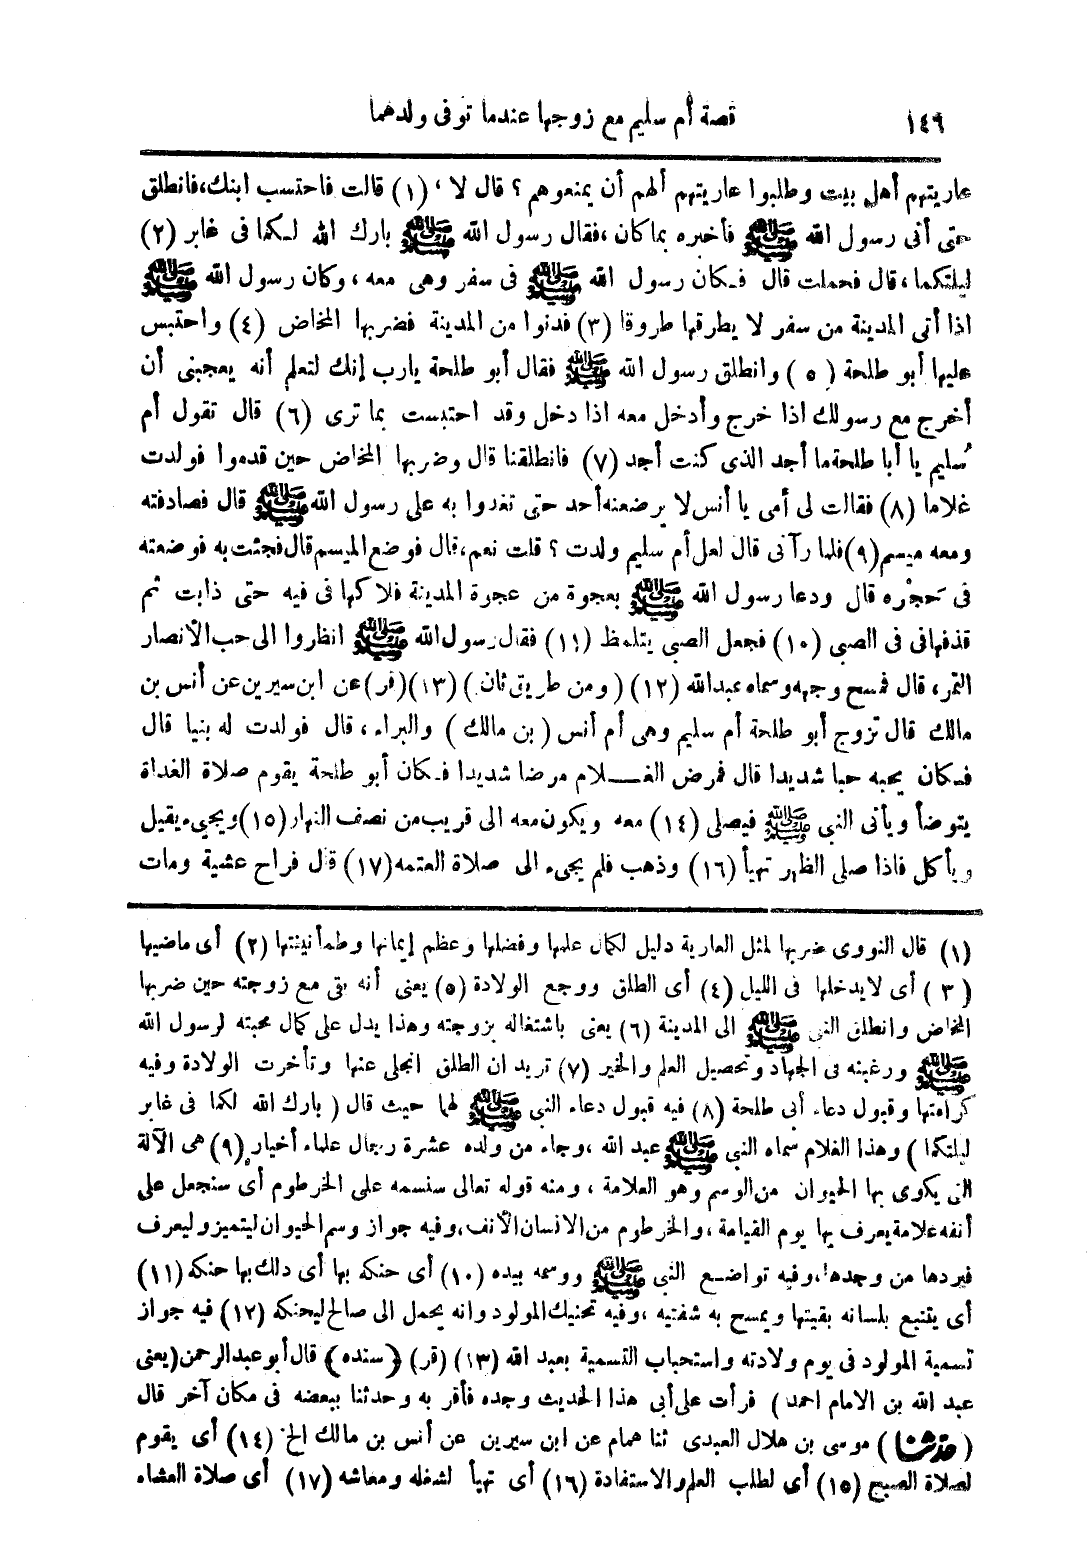 ١٤٩ قصة أم سليم مع زوجها عندما توفى ولدهما
عاريتهم أهل بيت وطلبوا عاريتهم ألهم أن يمنعوهم ؟ قال لا ، (١) قالت فاحتسب ابنك، فانطلق
حتى أتى رسول الله ﷺ فأخبره بما كان ، فقال رسول الله ﷺ بارك الله لكما فى غابر (٢)
ليلتكما ، قال فحملت قال فكان رسول الله ﷺ فى سفر وهى معه ، وكان رسول الله ﷺ
اذا أتى المدينة من سفر لا يطرقها طروقا (٣) فدنوا من المدينة فضربها المخاض (٤) واحتبس
عليها أبو طلحة (٥) وانطلق رسول الله ﷺ فقال أبو طلحة يارب إنك لتعلم أنه يعجبنى أن
أخرج مع رسولك اذا خرج وأدخل معه اذا دخل وقد احتبست بما ترى (٦) قال تقول أم
سُليم يا أبا طلحة ما أجد الذى كنت أجد (٧) فانطلقنا قال وضربها المخاض حين قدموا فولدت
غلاما (٨) فقالت لى أمى يا أنس لا يرضعنه أحد حتى تغدوا به على رسول الله ﷺ قال فصادفته
ومعه ميسم (٩) فلما رآنى قال لعل أم سليم ولدت ؟ قلت نعم، قال فوضع الميسم قال فجئت به فوضعته
فى حَجْره قال ودعا رسول الله ﷺ بعجوة من عجوة المدينة فلاكها فى فيه حتى ذابت ثم
قذفها فى فى الصبى (١٠) فجعل الصبى يتلمظ (١١) فقال رسول الله ﷺ انظروا الى حب الأنصار
التمر، قال فمسح وجهه وسماه عبد الله (١٢) (ومن طريق ثان) (١٣) (قر) عن ابن سيرين عن أنس بن
مالك قال تزوج أبو طلحة أم سليم وهى أم أنس (بن مالك) والبراء ، قال فولدت له بنيا قال
فكان يحبه حبا شديدا قال فمرض الغـــلام مرضا شديدا فكان أبو طلحة يقوم صلاة الغداة
يتوضأ ويأتى النبى ﷺ فيصلى (١٤) معه ويكون معه الى قريب من نصف النهار (١٥) ويجىء يقيل
ويأكل فاذا صلى الظهر تهيأ (١٦) وذهب فلم يجىء الى صلاة العتمه (١٧) قال فراح عشية ومات
(١) قال النووى ضربها لمثل العارية دليل لكمال علمها وفضلها وعظم إيمانها وطمأنينتها (٢) أى ماضيها
(٣) أى لا يدخلها فى الليل (٤) أى الطلق ووجع الولادة (٥) يعنى أنه بقى مع زوجته حين ضربها
المخاض وانطلق النبى ﷺ الى المدينة (٦) يعنى باشتغاله بزوجته وهذا يدل على كمال محبته لرسول الله
ﷺ ورغبته فى الجهاد وتحصيل العلم والخير (٧) تريد ان الطلق انجلى عنها وتأخرت الولادة وفيه
كرامتها وقبول دعاء أبى طلحة (٨) فيه قبول دعاء النبى ﷺ لهما حيث قال (بارك الله لكما فى غابر
ليلتكما) وهذا الغلام سماه النبى ﷺ عبد الله ، وجاء من ولده عشرة رجال علماء أخيار (٩) هى الآلة
التى يكوى بها الحيوان من الوسم وهو العلامة ، ومنه قوله تعالى سنسمه على الخرطوم أى سنجعل على
أنفه علامة يعرف بها يوم القيامة ، والخرطوم من الانسان الأنف ، وفيه جواز وسم الحيوان ليتميز وليعرف
فيردها من وجدها، وفيه تواضع النبى ﷺ ووسمه بيده (١٠) أى حنكه بها أى دلك بها حنكه (١١)
أى يتتبع بلسانه بقيتها ويمسح به شفتيه ، وفيه تحنيك المولود وانه يحمل الى صالح ليحنكه (١٢) فيه جواز
تسمية المولود فى يوم ولادته واستحباب التسمية بعبد الله (١٣) (قر) (سنده) قال أبو عبد الرحمن (يعنى
عبد الله بن الامام احمد) قرأت على أبى هذا الحديث وجده فأقر به وحدثنا ببعضه فى مكان آخر قال
(حدثنا) موسى بن هلال العبدى ثنا همام عن ابن سيرين عن أنس بن مالك الخ (١٤) أى يقوم
لصلاة الصبح (١٥) أى لطلب العلم والاستفادة (١٦) أى تهيأ لشغله ومعاشه (١٧) أى صلاة العشاء